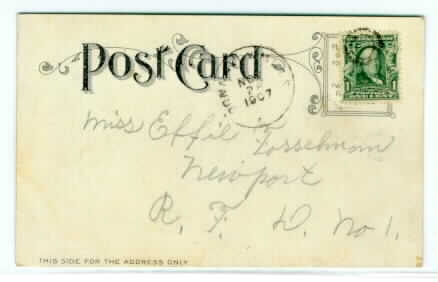 Post Card
NOV
1907
1 1
Miss Effie Fosselmom
Newport
R. F. D. No 1.
THIS SIDE FOR THE ADDRESS ONLY